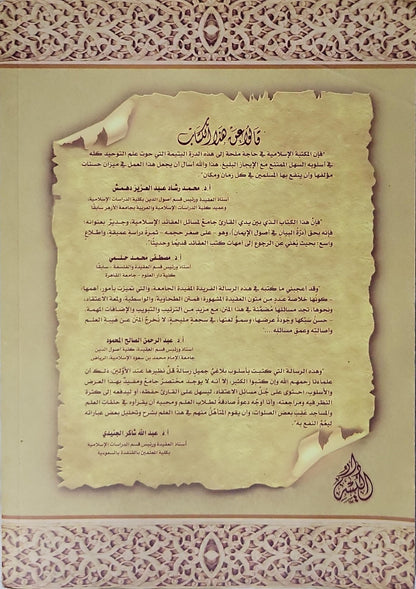 قالوا عن هذا الكتاب
"فإن المكتبة الإسلامية في حاجة ملحة إلى هذه الدرة اليتيمة التي حوت علم التوحيد كله
في أسلوبه السهل الممتنع مع الإيجاز البليغ، هذا والله أسأل أن يجعل هذا العمل في ميزان حسنات
مؤلفها وأن ينفع بها المسلمين في كل زمان ومكان"
أ.د. محمد رشاد عبد العزيز دهمش
أستاذ العقيدة ورئيس قسم أصول الدين بكلية الدراسات الإسلامية،
وعميد كلية الدراسات الإسلامية والعربية بجامعة الأزهر سابقًا
"فإن هذا الكتاب الذي بين يدي القارئ جامع لمسائل العقائد الإسلامية، وجدير بعنوانه؛
إنه بحق (درة البيان في أصول الإيمان)، وهو - على صغر حجمه - ثمرة دراسة عميقة، واطلاع
واسع؛ بحيث يغني عن الرجوع إلى أمهات كتب العقائد قديمًا وحديثًا"
أ.د. مصطفى محمد حلمي
أستاذ ورئيس قسم العقيدة والفلسفة - سابقًا
كلية دار العلوم - جامعة القاهرة
"وقد أعجبني ما كتبه في هذه الرسالة الفريدة المفيدة الجامعة، والتي تميزت بأمور، أهمها:
- كونها خلاصة عدد من متون العقيدة المشهورة؛ فمتن الطحاوية، والواسطية، ولمعة الاعتقاد،
ونحوها، تجد مسائلها مضمنة في هذا المتن، مع مزيد من الترتيب والتبويب والإضافات المهمة.
- حسن سبكها وجودة عرضها، وسمو لغتها، في سجعة مليحة، لا تخرج المتن عن هيبة العلم
وأصالته وعمق مسائله...."
أ.د. عبد الرحمن الصالح المحمود
أستاذ ورئيس قسم العقيدة، كلية أصول الدين
جامعة الإمام محمد بن سعود الإسلامية، الرياض
"وهذه الرسالة التي كتبت بأسلوب بلاغي جميل رسالة قل نظيرها عند الأولين، ذلك أن
علماءنا رحمهم الله وإن كتبوا الكثير، إلا أنه لا يوجد مختصر جامع ومفيد بهذا العرض
والأسلوب، احتوى على جل مسائل الاعتقاد، ليسهل على القارئ حفظه، أو ليدفعه إلى كثرة
النظر فيه ومراجعته، وأنا أوجه دعوة صادقة لطلاب العلم ومحبيه أن يقرأوه في حلقات العلم
والمساجد عقب بعض الصلوات؛ وأن يقوم المتأهل منهم في هذا العلم بشرح وتحليل بعض عباراته
ليعم النفع به".
أ.د. عبد الله شاكر الجنيدي
أستاذ العقيدة ورئيس قسم الدراسات الإسلامية
بكلية المعلمين بالقنفذة بالسعودية
دار اليسر